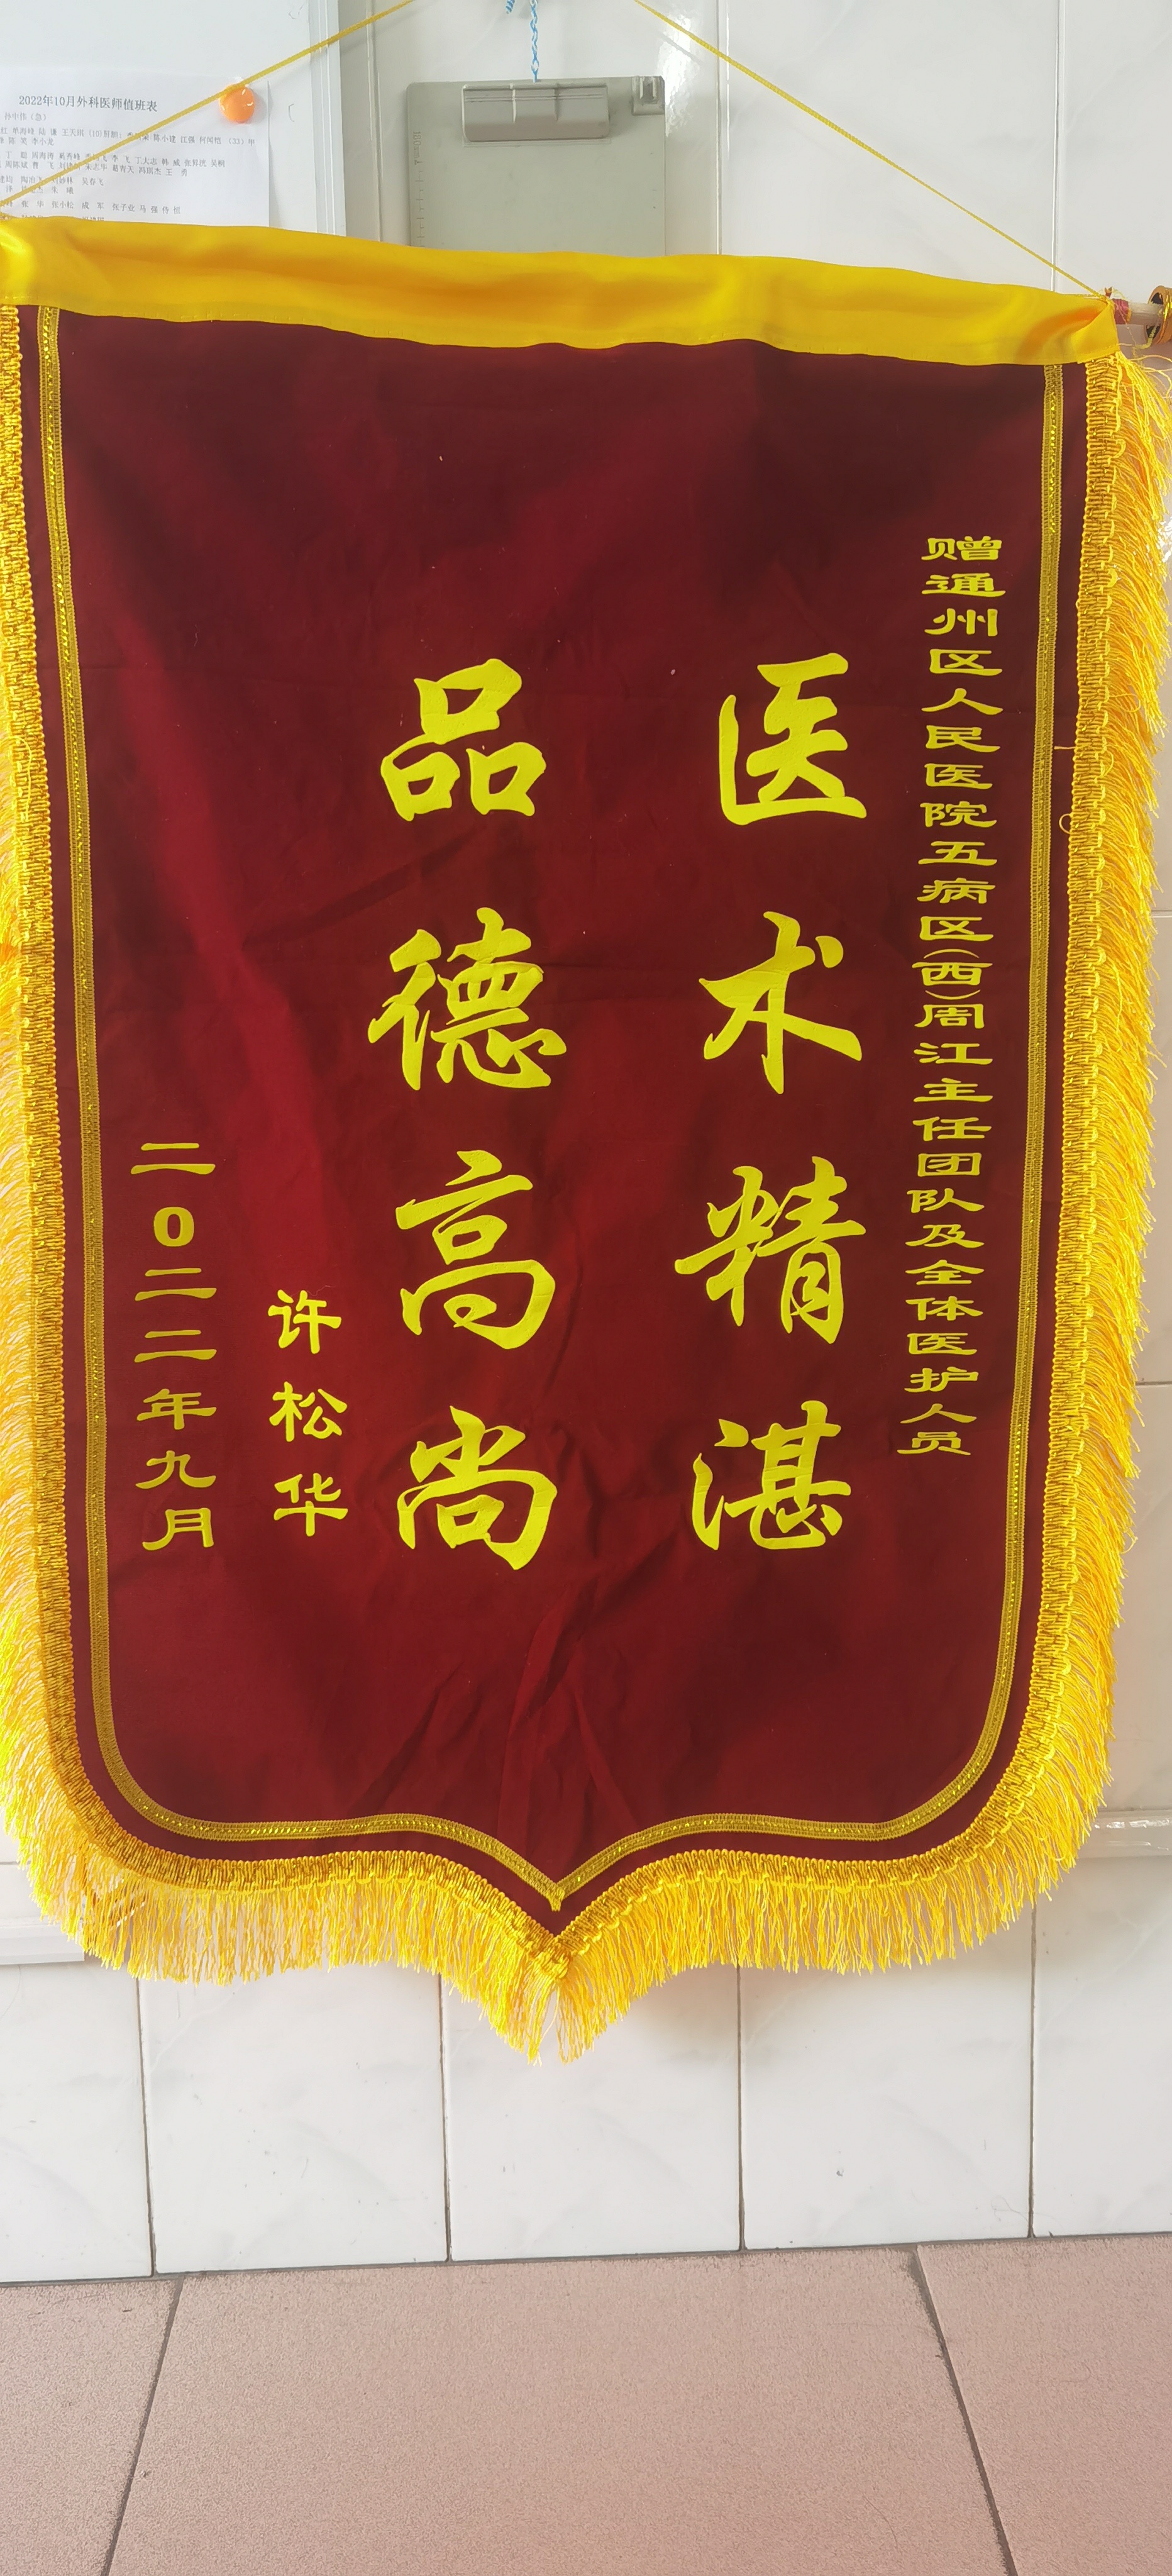 2022年10月外科医师值班表
赠通州区人民医院五病区(西)周江主任团队及全体医护人员
医术精湛
品德高尚
许松华
二0二二年九月